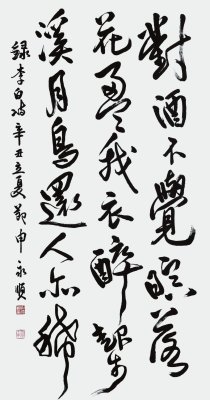 對酒不覺暝落
花盈我衣醉起步
溪月鳥還人亦稀
錄李白詩辛丑立夏節申永順